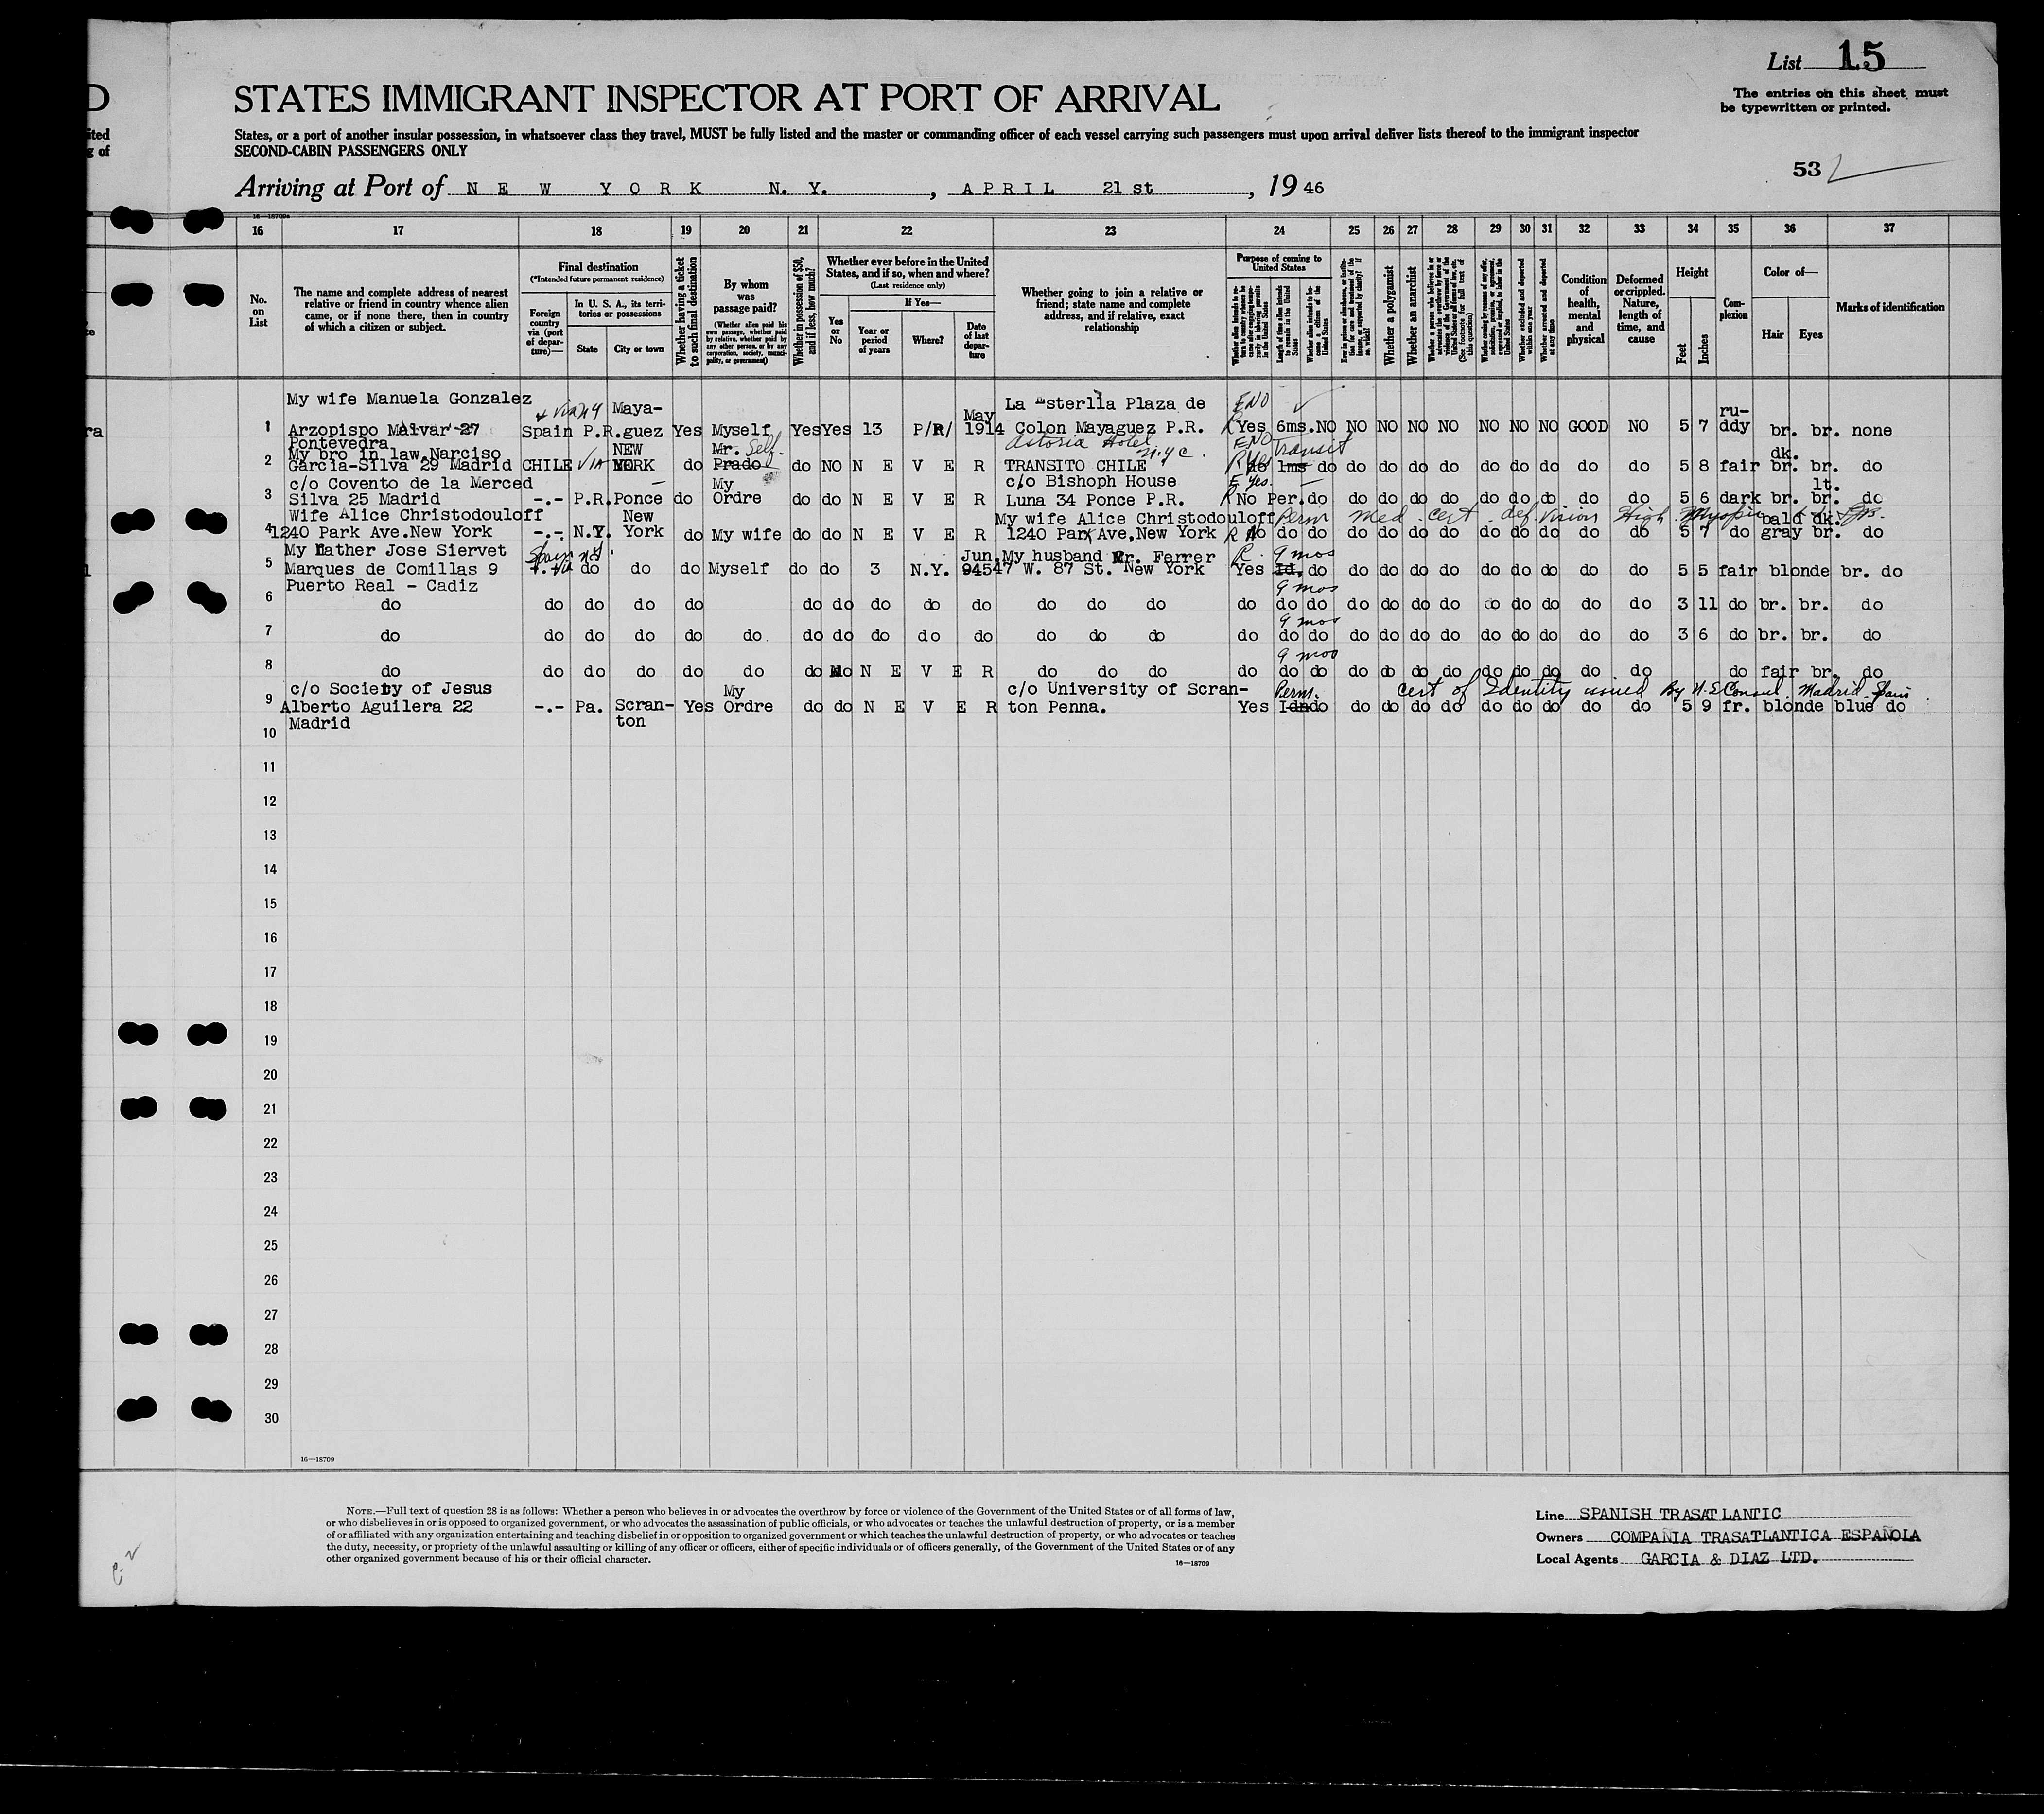 List 15
STATES IMMIGRANT INSPECTOR AT PORT OF ARRIVAL
The entries on this sheet must
be typewritten or printed.
States, or a port of another insular possession, in whatsoever class they travel, MUST be fully listed and the master or commanding officer of each vessel carrying such passengers must upon arrival deliver lists thereof to the immigrant inspector
SECOND-CABIN PASSENGERS ONLY
53
Arriving at Port of NEW YORK N. Y. , APRIL 21st , 19 46
16 17 18 19 20 21 22 23 24 25 26 27 28 29 30 31 32 33 34 35 36 37
No. on List
The name and complete address of nearest relative or friend in country whence alien came, or if none there, then in country of which a citizen or subject.
Final destination
(*Intended future permanent residence)
Foreign country via (port of departure)—
In U. S. A., its territories or possessions
State
City or town
Whether having a ticket to such final destination
By whom was passage paid?
(Whether alien paid his own passage, whether paid by relative, whether paid by any other person, or by any corporation, society, municipality, or government)
Whether in possession of $50, and if less, how much?
Whether ever before in the United States, and if so, when and where?
(Last residence only)
Yes or No
If Yes—
Year or period of years
Where?
Date of last departure
Whether going to join a relative or friend; state name and complete address, and if relative, exact relationship
Purpose of coming to United States
Whether a polygamist
Whether an anarchist
Condition of health, mental and physical
Deformed or crippled. Nature, length of time, and cause
Height
Feet
Inches
Complexion
Color of—
Hair
Eyes
Marks of identification
My wife Manuela Gonzalez
1 Arzopispo Malvar 27 Spain P.R. Maya-guez Yes Myself Yes Yes 13 P/R/ May 1914 La Plaza de Colon Mayaguez P.R. Yes 6ms. NO NO NO NO NO NO NO NO GOOD NO 5 7 ru-ddy br. br. none
Pontevedra
My bro in law Narciso
Astoria Hotel N.Y.C. Transit
2 Garcia-Silva 29 Madrid CHILE VIA NEW YORK do Mr. Prado Self. do NO N E V E R TRANSITO CHILE 1ms do do do do do do do do do do do 5 8 fair dk. br. br. do
c/o Covento de la Merced
3 Silva 25 Madrid -.- P.R. Ponce do My Ordre do do N E V E R c/o Bishoph House Luna 34 Ponce P.R. No Per. do do do do do do do do do do 5 6 dark br. lt. br. do
Wife Alice Christodouloff
Perm Med. cert. def. vision High Myopia
4 1240 Park Ave.New York -.- N.Y. New York do My wife do do N E V E R My wife Alice Christodouloff 1240 Park Ave, New York No do do do do do do do do do do do 5 7 do bald gray dk. br. do
My father Jose Siervet
9 mos
5 Marques de Comillas 9 do do do Myself do do 3 N.Y. Jun. 945 My husband Mr. Ferrer 47 W. 87 St. New York Yes Id. do do do do do do do do do do 5 5 fair blonde br. do
Puerto Real - Cadiz
9 mos
6 do do do do do do do do do do do do do do do do do do do do do do do do do do 3 11 do br. br. do
9 mos
7 do do do do do do do do do do do do do do do do do do do do do do do do do do do 3 6 do br. br. do
9 mos
8 do do do do do do do No N E V E R do do do do do do do do do do do do do do do do do fair br. do
c/o Society of Jesus
Perm. Cert of Identity issued By U.S Consul. Madrid. Spain
9 Alberto Aguilera 22 -.- Pa. Scran-ton Yes My Ordre do do N E V E R c/o University of Scran-ton Penna. Yes Idn do do do do do do do do do do do 5 9 fr. blonde blue do
Madrid
10
11
12
13
14
15
16
17
18
19
20
21
22
23
24
25
26
27
28
29
30
16—18709
NOTE.—Full text of question 28 is as follows: Whether a person who believes in or advocates the overthrow by force or violence of the Government of the United States or of all forms of law,
or who disbelieves in or is opposed to organized government, or who advocates the assassination of public officials, or who advocates or teaches the unlawful destruction of property, or is a member
of or affiliated with any organization entertaining and teaching disbelief in or opposition to organized government or which teaches the unlawful destruction of property, or who advocates or teaches
the duty, necessity, or propriety of the unlawful assaulting or killing of any officer or officers, either of specific individuals or of officers generally, of the Government of the United States or of any
other organized government because of his or their official character.
16—18709
Line SPANISH TRASATLANTIC
Owners COMPAÑIA TRASATLANTICA ESPAÑOLA
Local Agents GARCIA & DIAZ LTD.